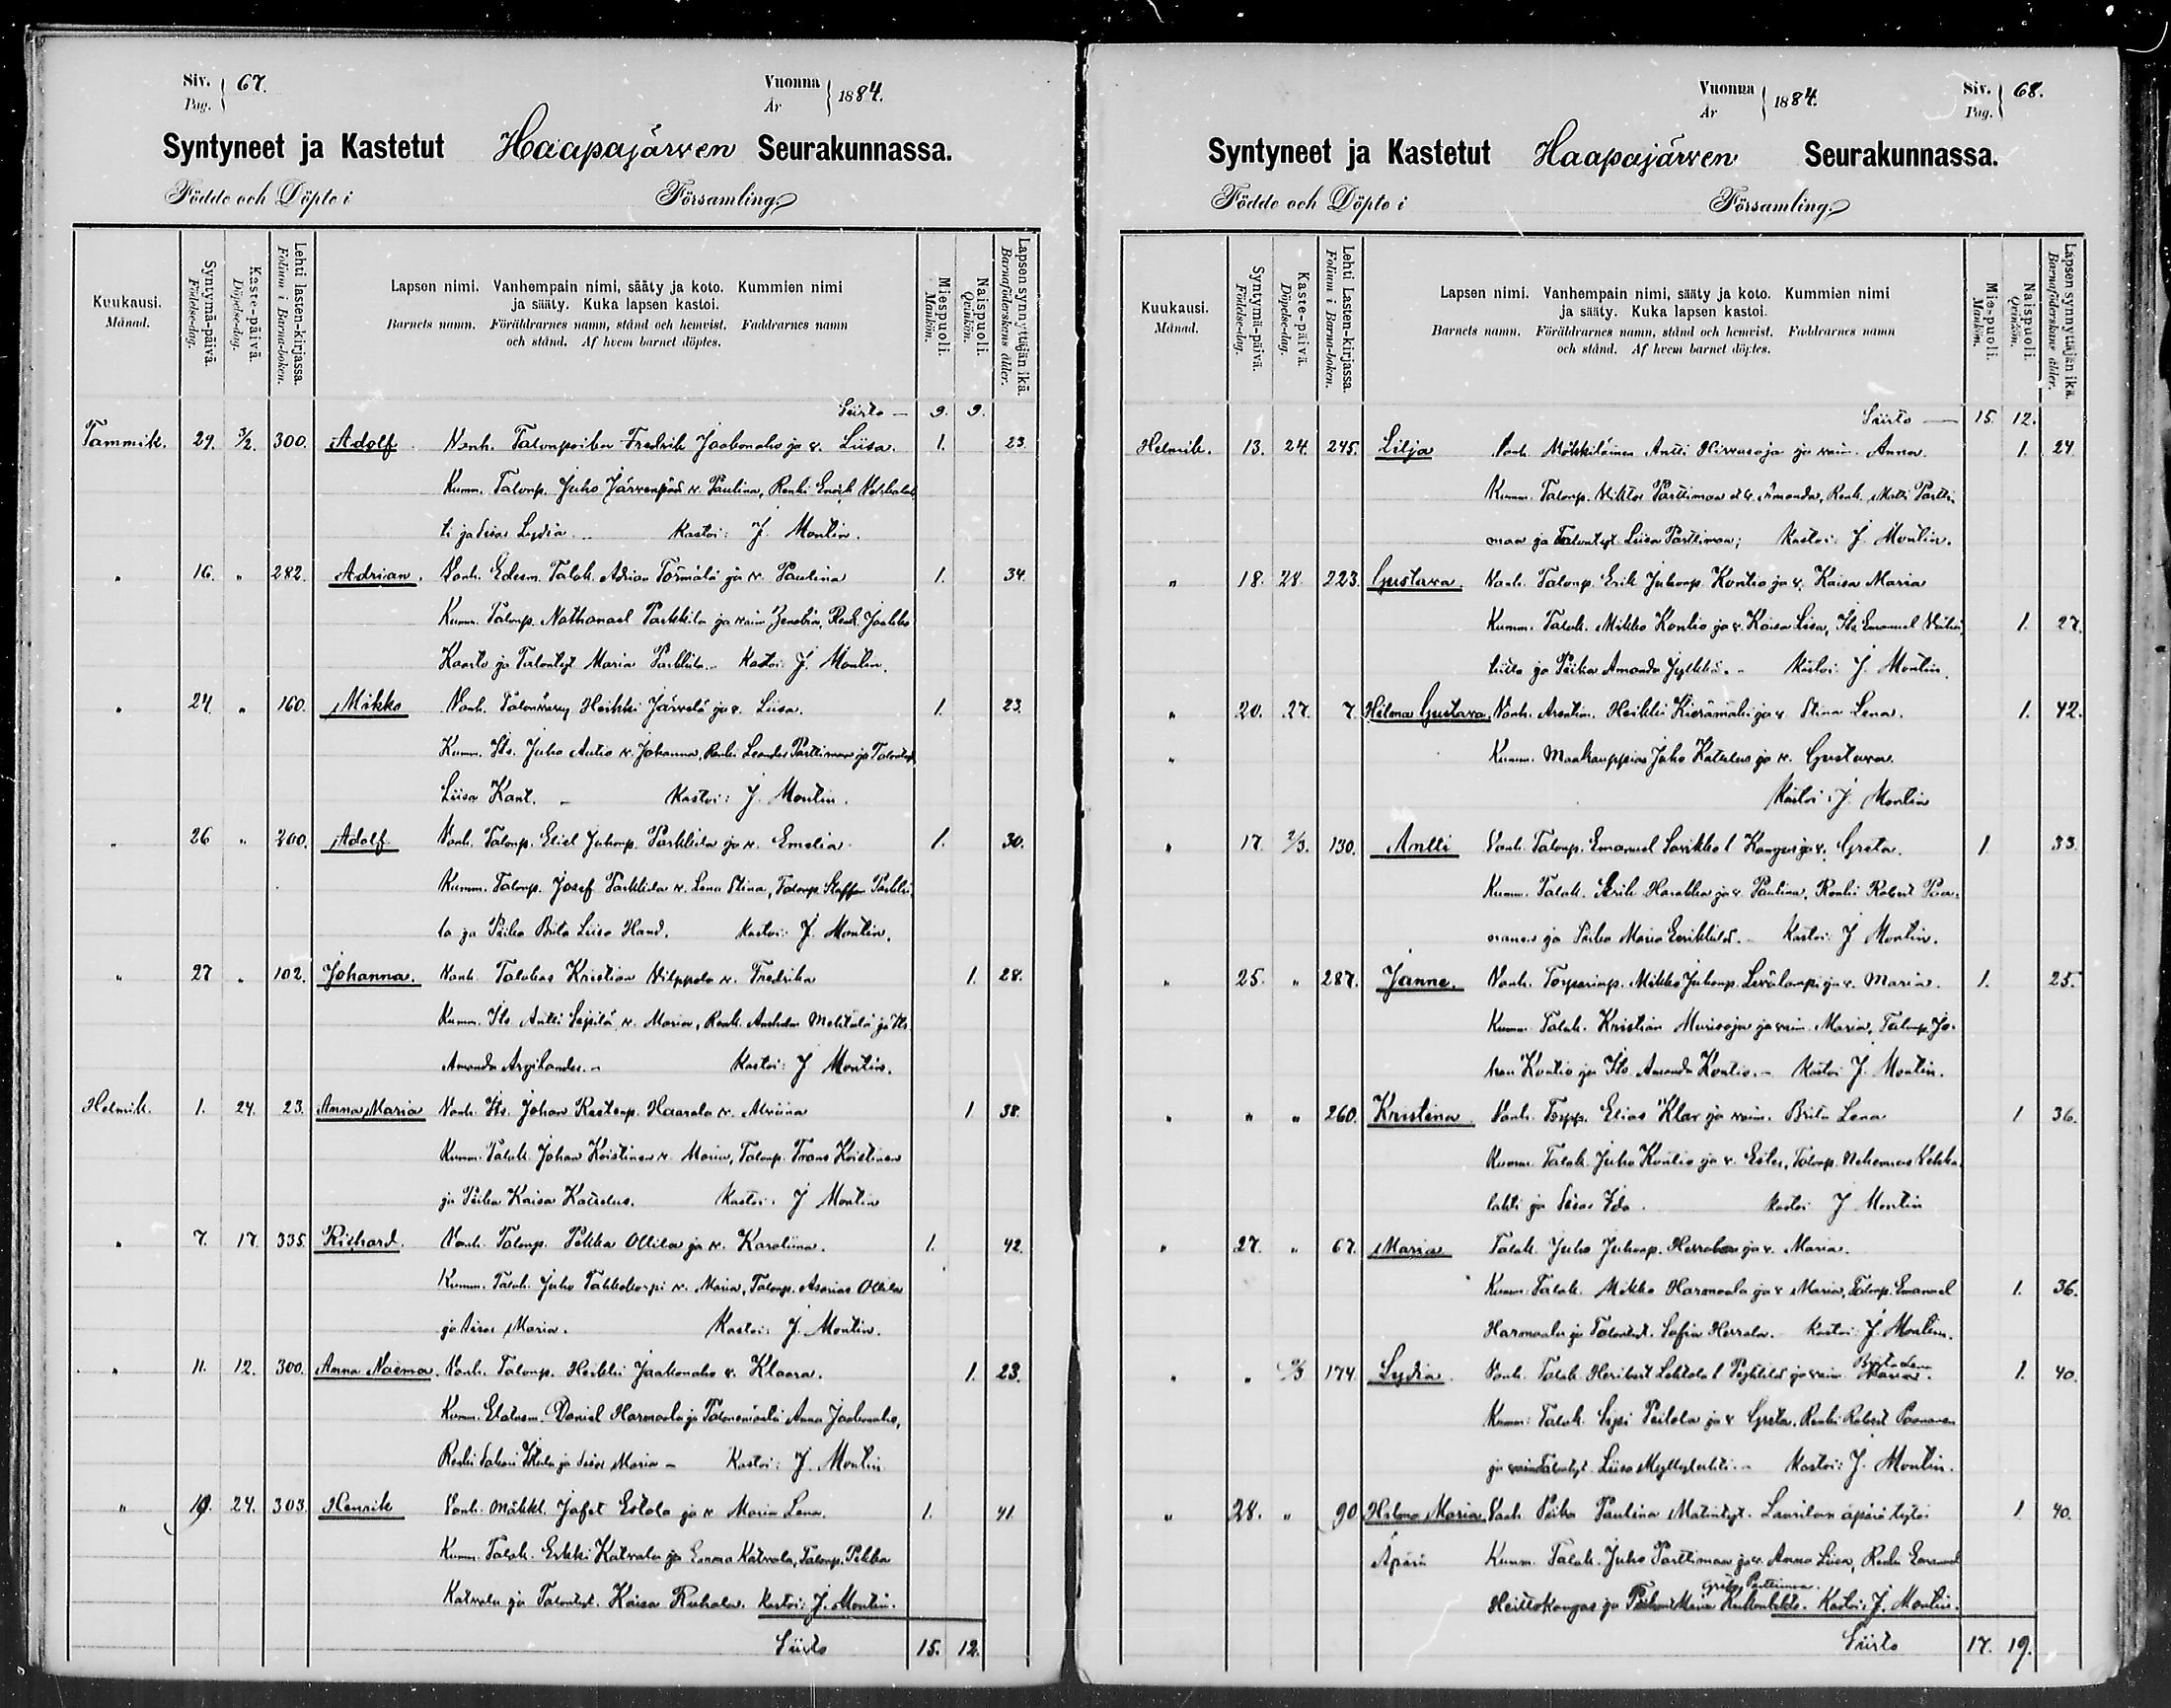 Siv. 67.
Pag.
Vuonna 1884.
År
Syntyneet ja Kastetut Haapajärven Seurakunnassa.
Födde och Döpte i Församling.
Kuukausi.
Månad.
Syntymä-päivä.
Födelse-dag.
Kaste-päivä.
Döpelse-dag.
Lehti lasten-kirjassa.
Folium i Barna-boken.
Lapsen nimi. Vanhempain nimi, sääty ja koto. Kummien nimi
ja sääty. Kuka lapsen kastoi.
Barnets namn. Föräldrarnes namn, stånd och hemvist. Faddrarnes namn
och stånd. Af hvem barnet döptes.
Miespuoli.
Mankön.
Naispuoli.
Qvinkön.
Lapsen synnyttäjän ikä.
Barnaföderskans ålder.
Siirto — 9. 9.
Tammik. 29. 3/2. 300. Adolf Vanh. Talonpoika Fredrik Jaakonaho ja v. Liisa. 1. 23.
Kumm. Talonp. Juho Järvenpää v. Paulina, Renki
ti ja sisar Lydia. Kastoi: J. Montin.
" 16. " 282. Adrian. Vanh. Edesm. Talok. Adrian Törmälä ja v. Paulina 1. 34.
Kumm. Talonp. Nathanael Parkkila ja vaim. Renk. Jaakko
Kaarto ja Talontyt Maria Parkkila. Kastoi: J. Montin.
" 24. " 160. Mikko Vanh. Heikki Järvelä ja v. Liisa. 1. 23.
Kumm. Its. Juho Autio v. Johanna, Renki Leander Parttimaa ja
Liisa Kant. Kastoi: J. Montin.
" 26 " 200. Adolf Vanh. Talonp. Eliel Juhonp. Parkkila ja v. Emelia 1. 30.
Kumm. Talonp. Josef Parkkila v. Lena Stina, Talonp. Staffan Parkki
la ja Piika Brita Liisa Hand. Kastoi: J. Montin.
" 27 " 102. Johanna. Vanh. Talokas Kristian Vilppola v. Fredrika 1. 28.
Kumm. Its. Antti Sipilä v. Maria, Renk. ja Its.
Amanda Argilander. Kastoi: J Montin.
Helmik. 1. 24. 23. Anna Maria Vanh. Its. Johan Haarala v. 1 38.
Kumm. Talok. Johan Koistinen v. Maria, Talonp. Frans Koistinen
ja Piika Kaisa Katselus. Kastoi: J Montin
" 7. 17. 335. Richard. Vanh. Talonp. Pekka Ollila ja v. Karolina. 1. 42.
Kumm. Talok. Juho Takkokorpi v. Maria, Talonp. Asarias Ollila
ja sisar Maria. Kastoi: J. Montin.
" 11. 12. 300. Anna Naema. Vanh. Talonp. Heikki Jaakonaho v. Klaara. 1. 23.
Kumm. Daniel Harmaala ja Talonemäntä Anna Jaakonaho,
Renki ja sisar Maria - Kastoi: J. Montin
" 19. 24. 303. Henrik Vanh. Mäkkl. Jafet Eskola ja v Maria Lena. 1. 41.
Kumm. Talok. Erkki Katvala ja Emma Katvala, Talonp. Pekka
Katvala ja Talontyt. Kaisa Ruhala. Kastoi: J. Montin.
Siirto 15. 12.
Vuonna 1884.
År
Siv. 68.
Pag.
Syntyneet ja Kastetut Haapajärven Seurakunnassa.
Födde och Döpte i Församling.
Kuukausi.
Månad.
Syntymä-päivä.
Födelse-dag.
Kaste-päivä.
Döpelse-dag.
Lehti Lasten-kirjassa.
Folium i Barna-boken.
Lapsen nimi. Vanhempain nimi, sääty ja koto. Kummien nimi
ja sääty. Kuka lapsen kastoi.
Barnets namn. Föräldrarnes namn, stånd och hemvist. Faddrarnes namn
och stånd. Af hvem barnet döptes.
Mies-puoli.
Mankön.
Naispuoli.
Qvinkön.
Lapsen synnyttäjän ikä.
Barnaföderskans ålder.
Siirto — 15. 12.
Helmik. 13. 24. 245. Lilja Vanh. Mökkiläinen Antti Hirvasoja ja vaim. Anna. 1. 24.
Kumm. Talonp. Viktor Parttimaa v. Amanda, Renk. Matti Partti
maa ja Talontyt Liisa Parttimaa; Kastoi: J. Montin.
" 18. 28. 223. Gustava. Vanh. Talonp. Erik Juhonp. Kontio ja v. Kaisa Maria
Kumm. Talok. Mikko Kontio ja v. Kaisa Liisa, Its. Emanuel 1. 27.
ja Piika Amanda Kastoi: J. Montin.
" 20. 27. 7. Helena Gustava. Vanh. Heikki Kierämäki ja v Stina Lena. 1. 42.
" Kumm. Maakauppias Juho Katselus ja v. Gustava.
Kastoi: J. Montin
" 17. 2/3. 130. Antti Vanh. Talonp. Emanuel Savikko l. Kangas ja v. Greta. 1. 33.
Kumm. Talok. Erik Harakka ja v. Paulina, Renki Robert Paa-
nanen ja Piika Maria Kastoi: J Montin.
" 25. " 287. Janne. Vanh. Torparinp. Mikko Juhonp. Levälampi ja v. Maria. 1. 25.
Kumm. Talok. Kristian Murisoja ja vaim. Maria, Talonp. Jo-
han Kontio ja Its. Amanda Kontio. - Kastoi J. Montin.
" " " 260. Kristina. Vanh. Torpp. Elias Klav ja vaim. Brita Lena 1 36.
Kumm. Talok. Juho Kontio ja v. Ester, Talonp. Vehka
lahti ja Sisar Ida. Kastoi J Montin
" 27. " 67. Maria Talok. Juho Juhonp. Herrala ja v. Maria.
Kumm. Talok. Mikko Harmaala ja v Maria, Talonp. Emanuel 1. 36.
Harmaala ja Talontyt. Sofia Herrala. Kastoi: J. Montin.
Brita Lena
" " 174. Lydia. Vanh. Talok. Heribert Lehtola l. ja vaim 1. 40.
Kumm: Talok. Sipi Peilola ja v Greta, Renki Robert Paananen
ja Talontyt. Liisa Kastoi: J. Montin.
" 28. " 90 Helena Maria Vanh. Piika Paulina Laurilan äpärä tytär 1 40.
Äpärä Kumm. Talok. Juho Parttimaa ja v. Anna Liisa, Renki Emanuel
Greta Parttimaa.
Heittokangas ja Kastoi: J. Montin.
Siirto 17. 19.